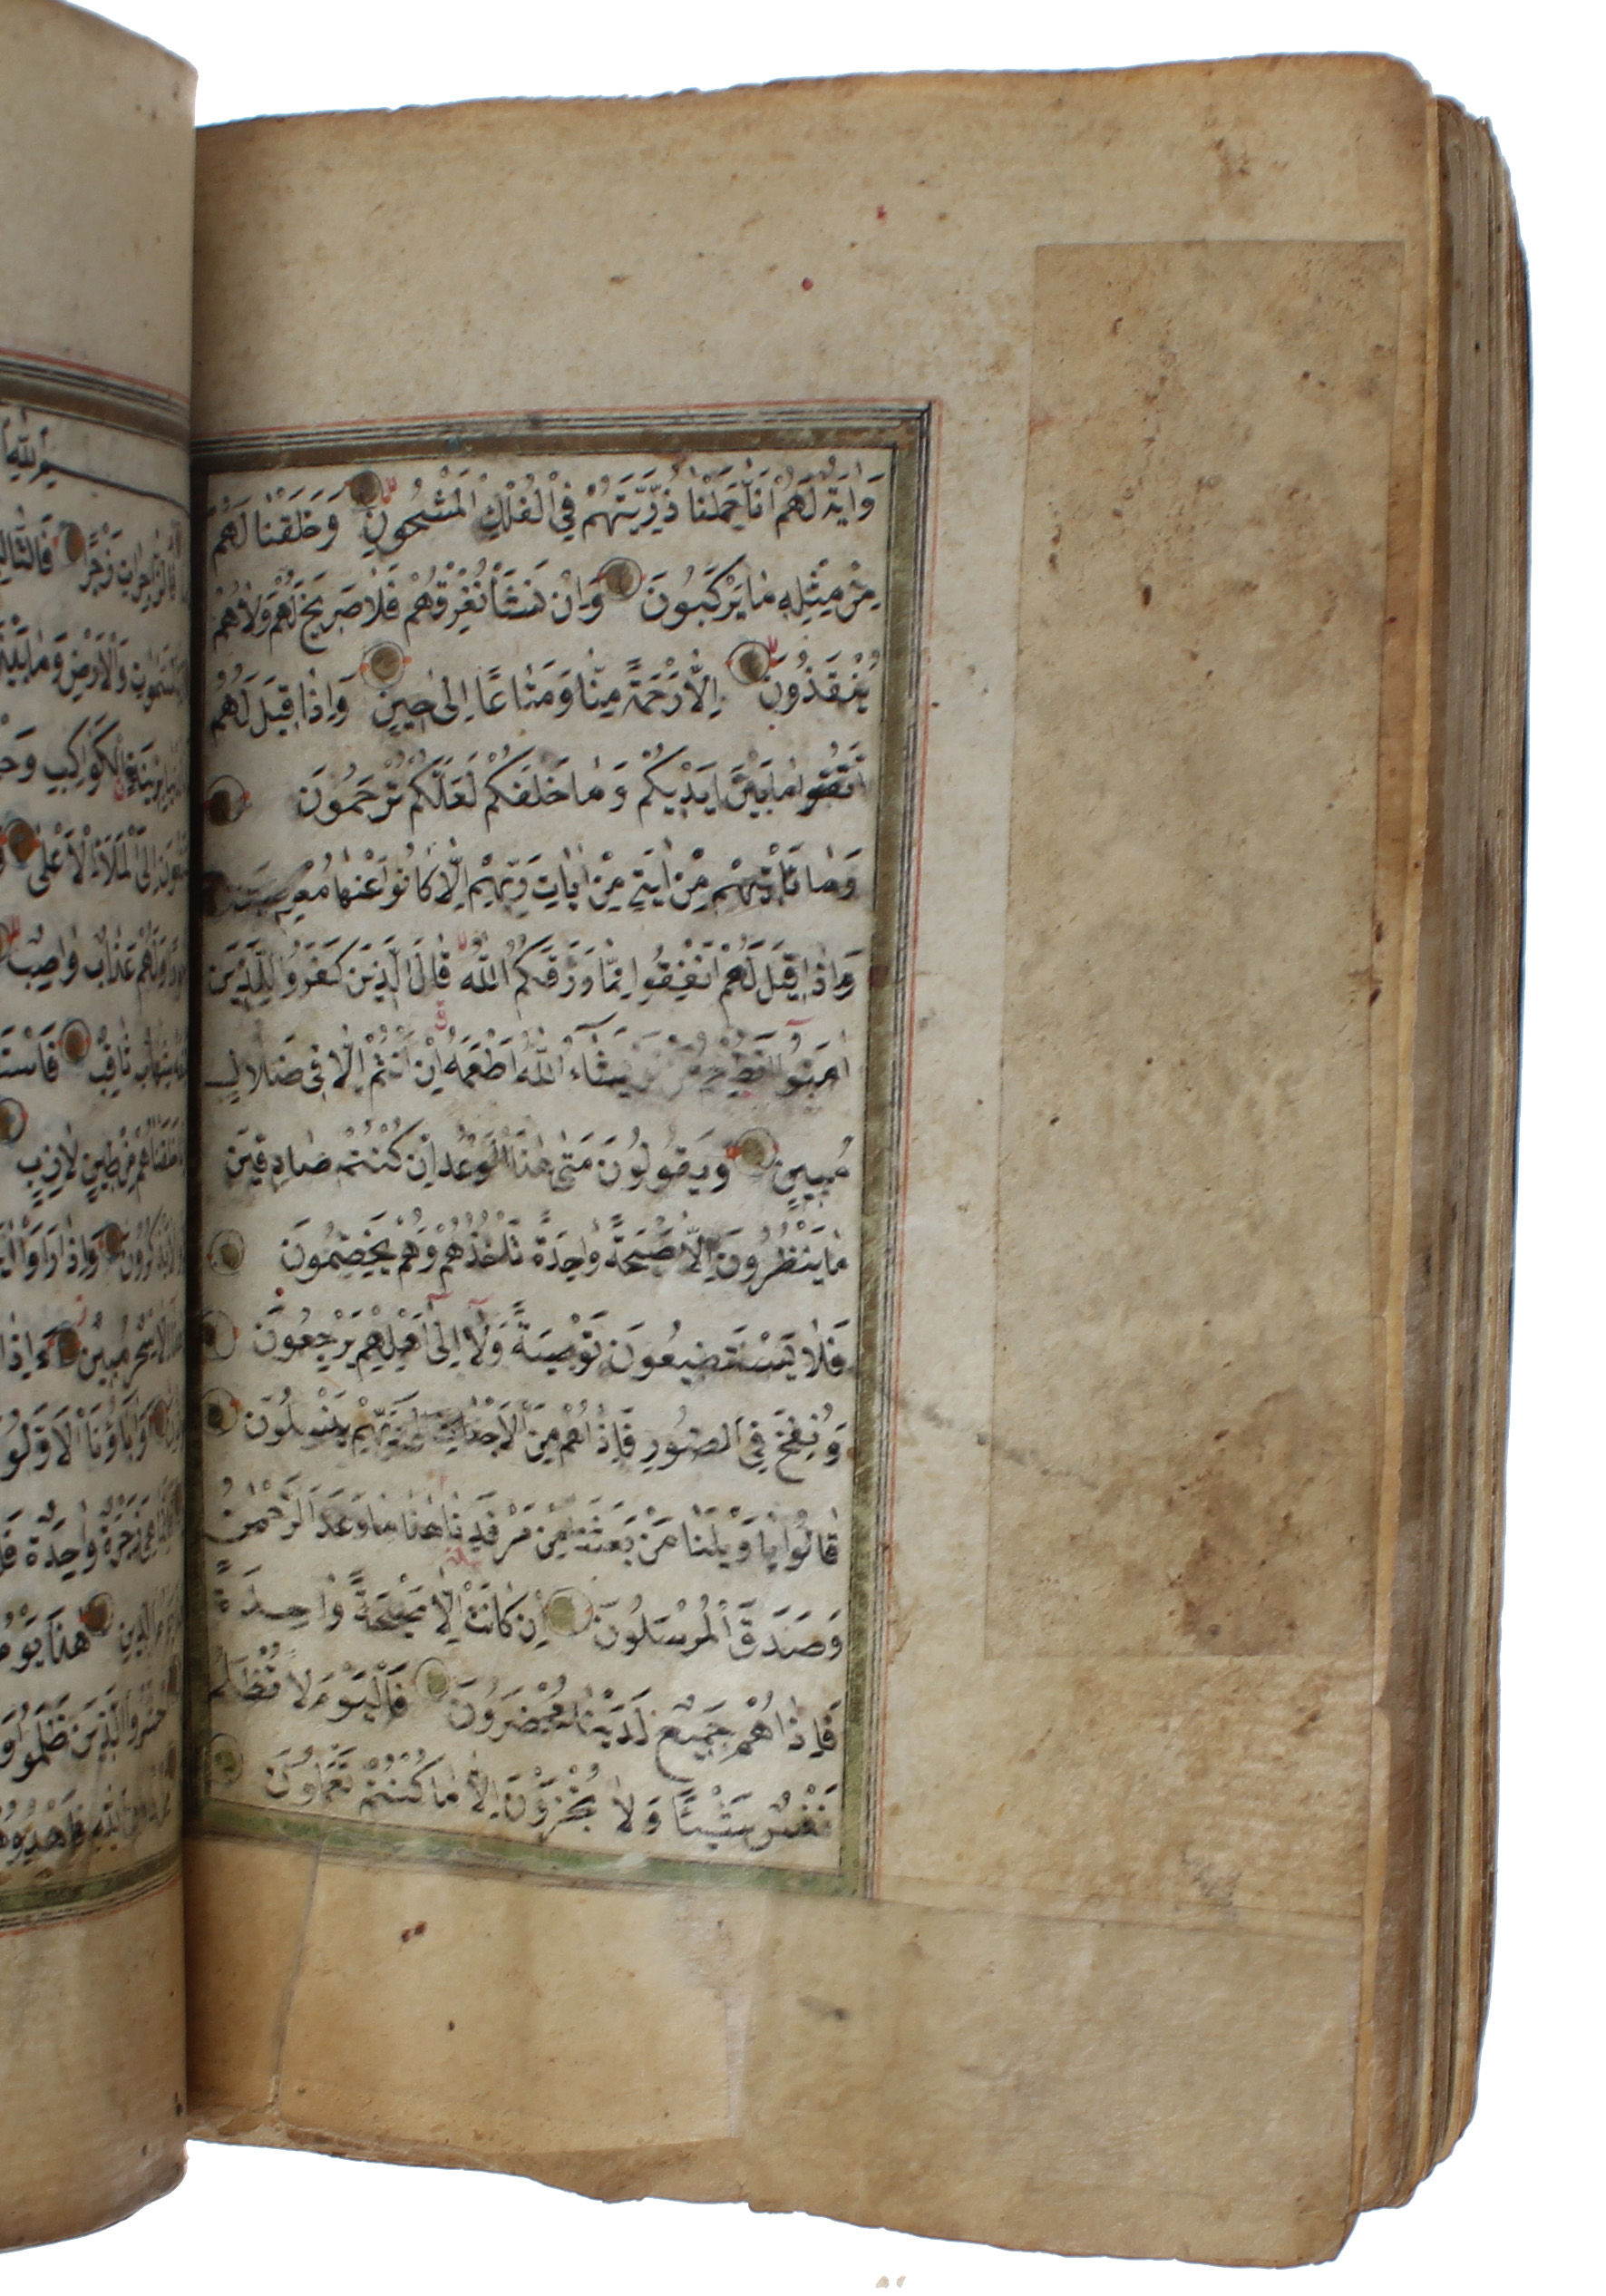 وَاٰيَةٌ لَهُمْ اَنَّا حَمَلْنَا ذُرِّيَّتَهُمْ فِي الْفُلْكِ الْمَشْحُونِ وَخَلَقْنَا لَهُمْ
مِنْ مِثْلِهِ مَا يَرْكَبُونَ وَاِنْ نَشَأْ نُغْرِقْهُمْ فَلَا صَرِيخَ لَهُمْ وَلَا هُمْ
يُنْقَذُونَ اِلَّا رَحْمَةً مِنَّا وَمَتَاعًا اِلٰى حِينٍ وَاِذَا قِيلَ لَهُمُ
اتَّقُوا مَا بَيْنَ اَيْدِيكُمْ وَمَا خَلْفَكُمْ لَعَلَّكُمْ تُرْحَمُونَ
وَمَا تَأْتِيهِمْ مِنْ اٰيَةٍ مِنْ اٰيَاتِ رَبِّهِمْ اِلَّا كَانُوا عَنْهَا مُعْرِضِينَ
وَاِذَا قِيلَ لَهُمْ اَنْفِقُوا مِمَّا رَزَقَكُمُ اللّٰهُ قَالَ الَّذِينَ كَفَرُوا لِلَّذِينَ
اٰمَنُوٓا اَنُطْعِمُ مَنْ لَوْ يَشَآءُ اللّٰهُ اَطْعَمَهُ اِنْ اَنْتُمْ اِلَّا فِي ضَلَالٍ
مُبِينٍ وَيَقُولُونَ مَتٰى هٰذَا الْوَعْدُ اِنْ كُنْتُمْ صَادِقِينَ
مَا يَنْظُرُونَ اِلَّا صَيْحَةً وَاحِدَةً تَأْخُذُهُمْ وَهُمْ يَخِصِّمُونَ
فَلَا يَسْتَطِيعُونَ تَوْصِيَةً وَلَآ اِلٰىٓ اَهْلِهِمْ يَرْجِعُونَ
وَنُفِخَ فِي الصُّورِ فَاِذَا هُمْ مِنَ الْاَجْدَاثِ اِلٰى رَبِّهِمْ يَنْسِلُونَ
قَالُوا يَا وَيْلَنَا مَنْ بَعَثَنَا مِنْ مَرْقَدِنَا هٰذَا مَا وَعَدَ الرَّحْمٰنُ
وَصَدَقَ الْمُرْسَلُونَ اِنْ كَانَتْ اِلَّا صَيْحَةً وَاحِدَةً
فَاِذَا هُمْ جَمِيعٌ لَدَيْنَا مُحْضَرُونَ فَالْيَوْمَ لَا تُظْلَمُ
نَفْسٌ شَيْئًا وَلَا تُجْزَوْنَ اِلَّا مَا كُنْتُمْ تَعْمَلُونَ
فَالزَّاجِرَاتِ زَجْرًا
وَالْاَرْضِ وَمَا
الْكَوَاكِبِ
اِلَى الْمَلَاِ الْاَعْلٰى
وَلَهُمْ عَذَابٌ وَاصِبٌ
شِهَابٌ ثَاقِبٌ
خَلَقْنَاهُمْ مِنْ طِينٍ لَازِبٍ
وَاِذَا رَاَوْا
سِحْرٌ مُبِينٌ
زَجْرَةٌ وَاحِدَةٌ
الدِّينِ هٰذَا يَوْمُ
الَّذِينَ ظَلَمُوا